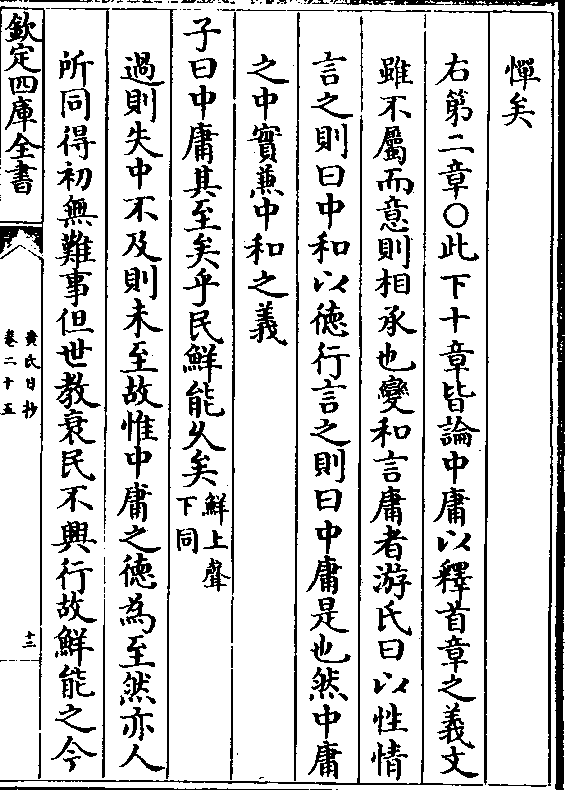 憚矣
右第二章○此下十章皆論中庸以釋首章之義文
雖不屬而意則相承也變和言庸者游氏曰以性情
言之則曰中和以德行言之則曰中庸是也然中庸
之中實兼中和之義
子曰中庸其至矣乎民鮮能久矣鮮上聲
下同
過則失中不及則未至故惟中庸之德為至然亦人
所同得初無難事但世教衰民不興行故鮮能之今
欽定四庫全書
黄氏日抄
卷二十五
十三